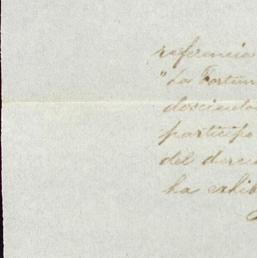 referencia
"La Fortun
doscientos
participo
del derech
ha exhib